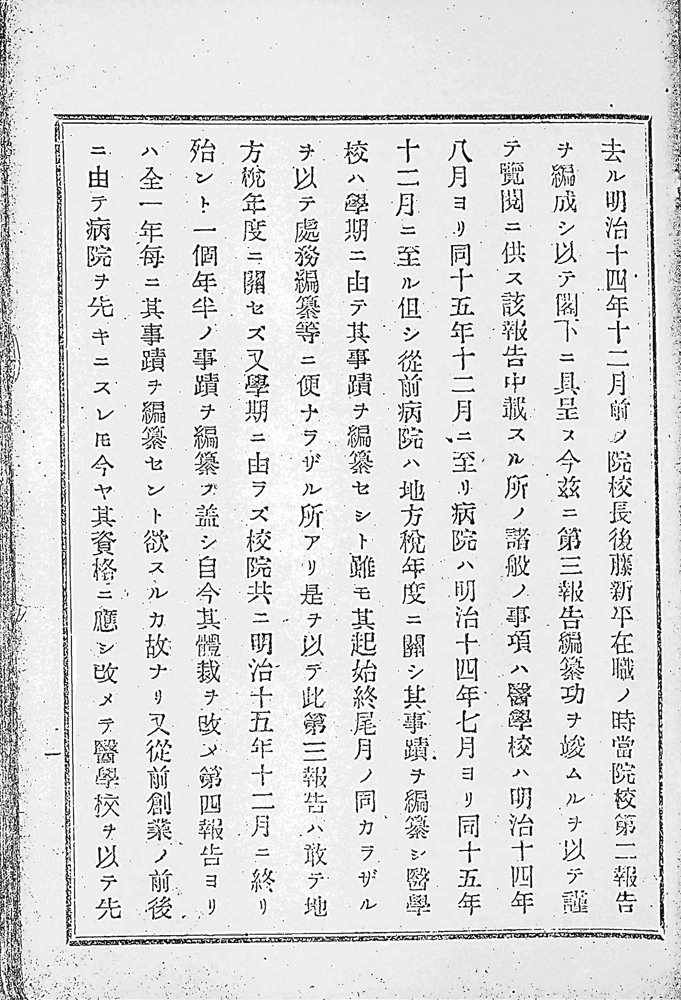 去ル明治十四年十二月前ノ院校長後藤新平在職ノ時當院校第二報告
ヲ編成シ以テ閣下ニ具呈ス今玆ニ第三報告編纂功ヲ竣ムルヲ以テ謹
テ覽閱ニ供ス該報告中載スル所ノ諸般ノ事項ハ醫學校ハ明治十四年
八月ヨリ同十五年十二月ニ至リ病院ハ明治十四年七月ヨリ同十五年
十二月ニ至ル但シ從前病院ハ地方稅年度ニ關シ其事蹟ヲ編纂シ醫學
校ハ學期ニ由テ其事蹟ヲ編纂セシト雖モ其起始終尾月ノ同カラザル
ヲ以テ處務編纂等ニ便ナラザル所アリ是ヲ以テ此第三報告ハ敢テ地
方稅年度ニ關セズ又學期ニ由ラズ校院共ニ明治十五年十二月ニ終リ
殆ント一個年半ノ事蹟ヲ編纂ス盖シ自今其體裁ヲ改メ第四報告ヨリ
ハ全一年每ニ其事蹟ヲ編纂セント欲スルカ故ナリ又從前創業ノ前後
ニ由テ病院ヲ先キニスレ𪜈今ヤ其資格ニ應シ改メテ醫學校ヲ以テ先
一